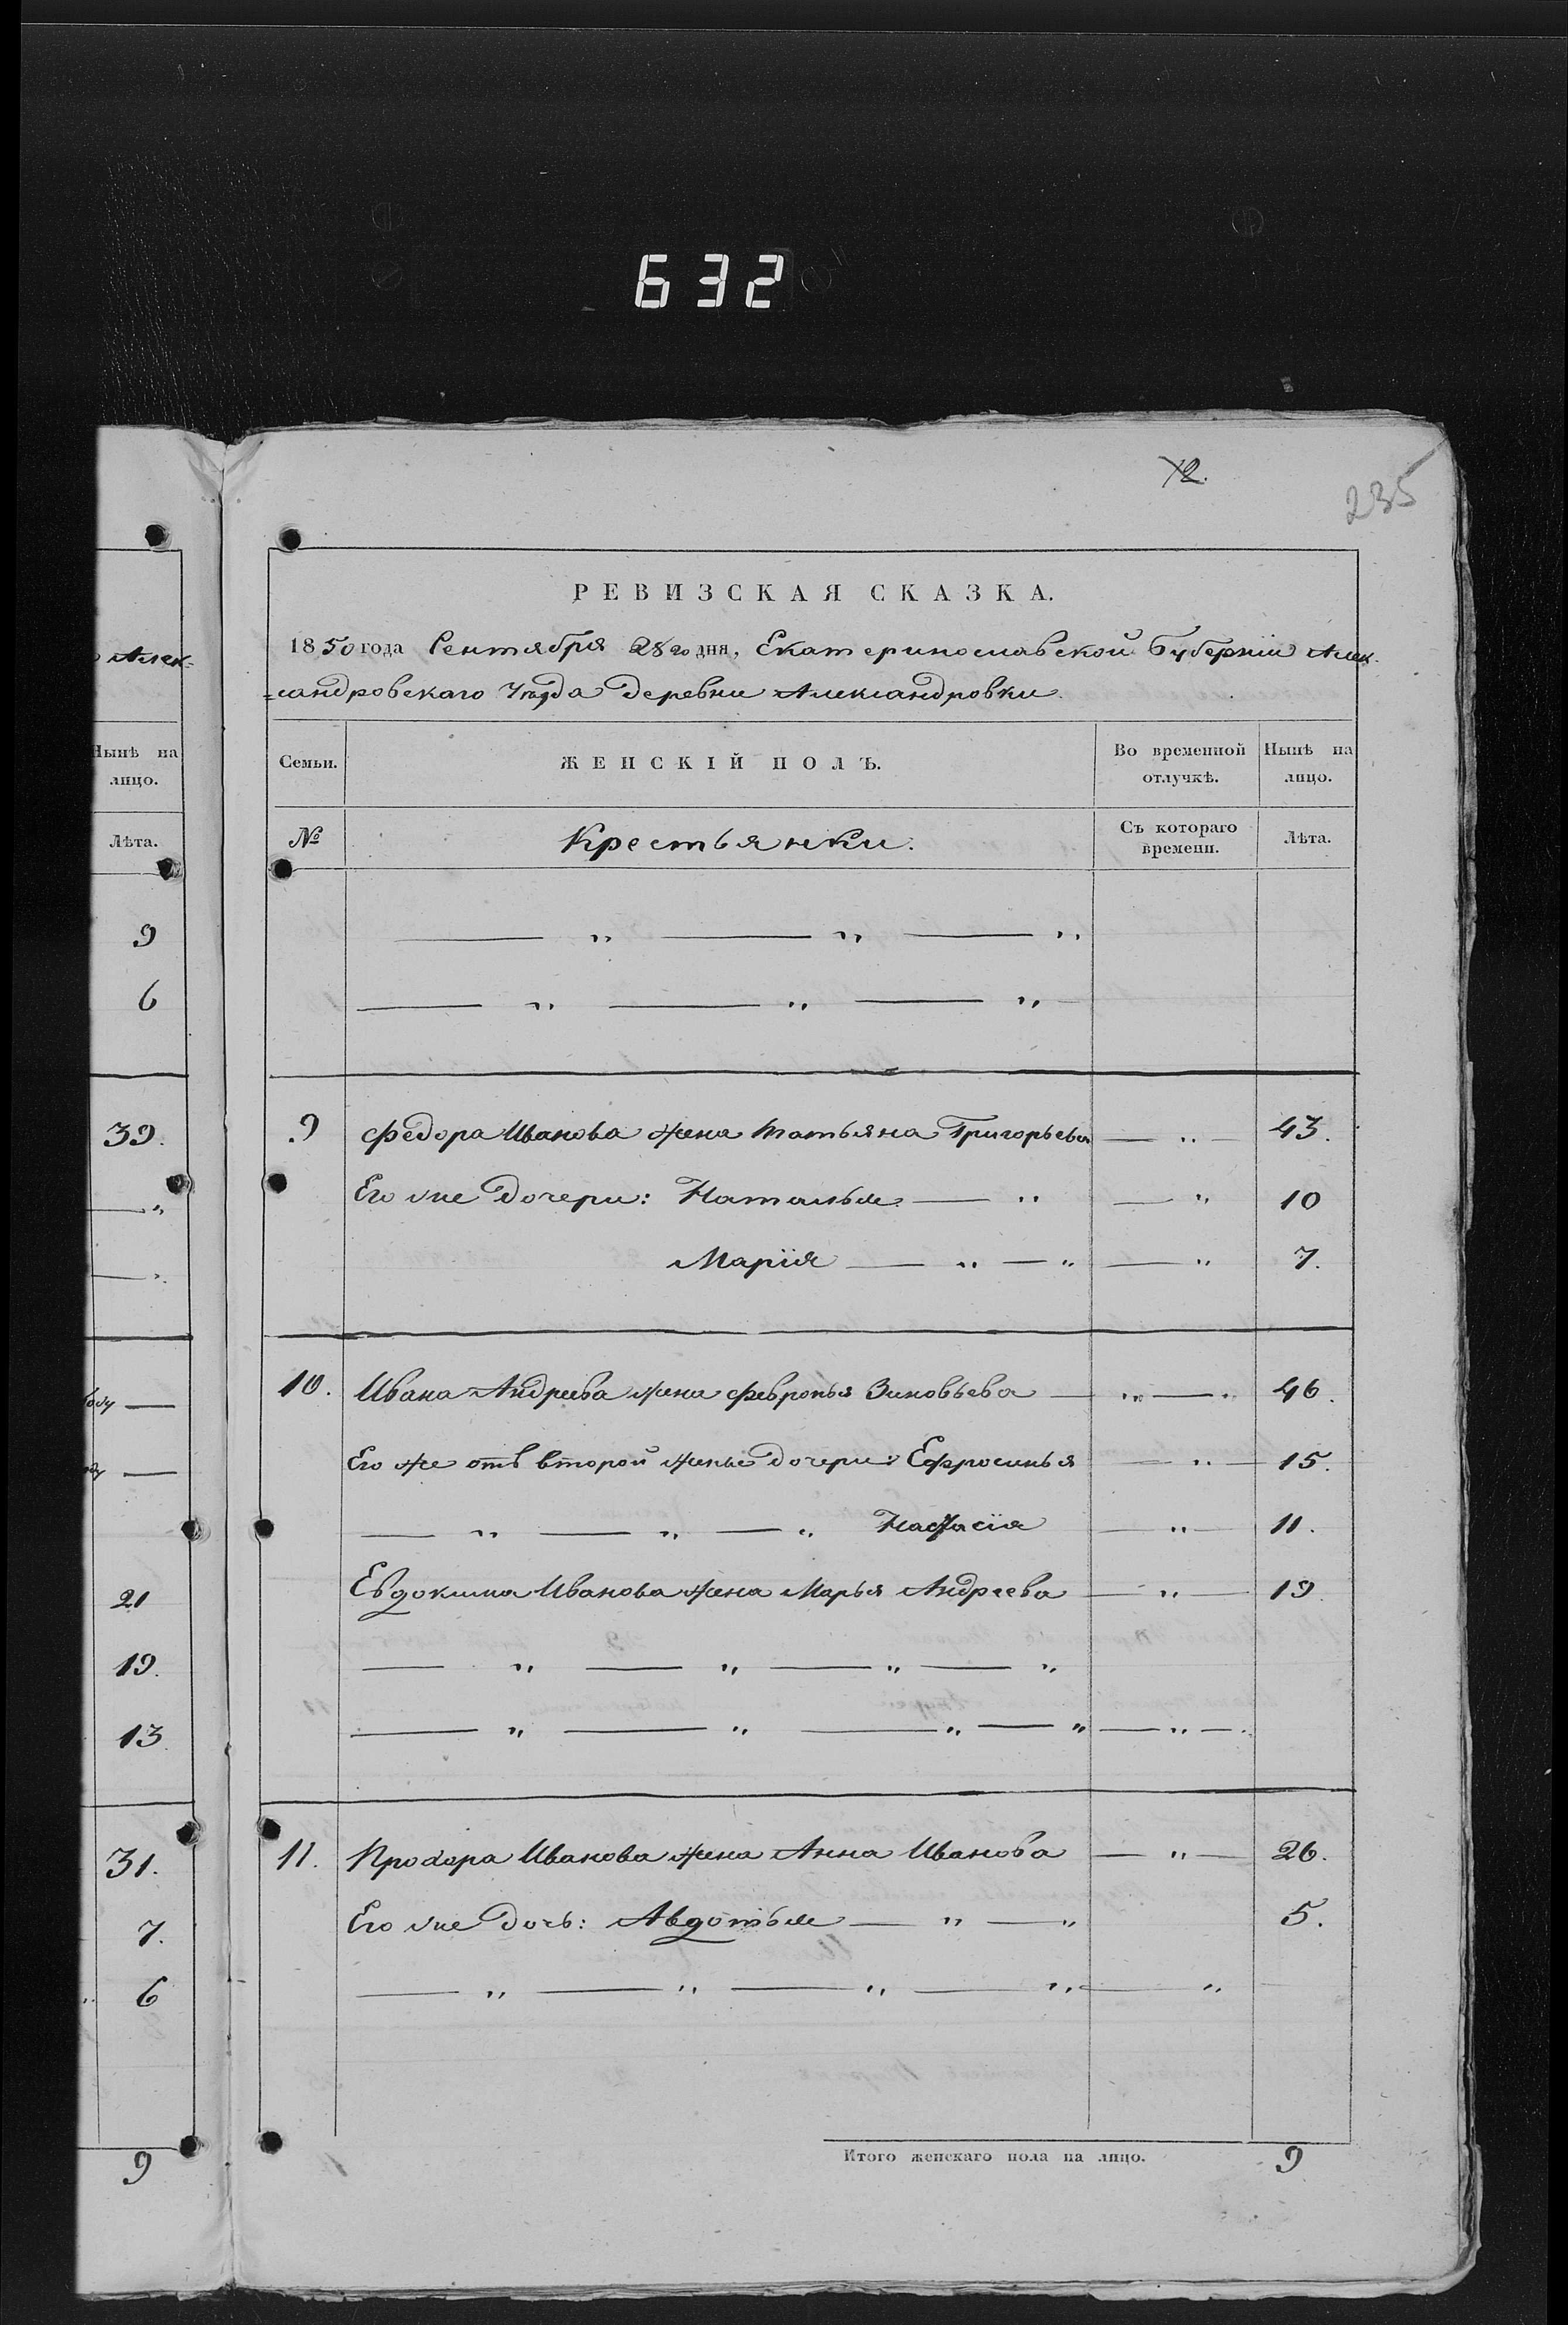 632
12.
235
Алек-
Нынѣ на
лицо.
Лѣта.
9
6
39.
"
"
21
19.
13
31.
7.
6
9
РЕВИЗСКАЯ СКАЗКА.
1850 года Сентября 28го дня, Екатеринославской Губерніи Алек-
=сандровскаго Уѣзда деревни Александровки.
Семьи. ЖЕНСКІЙ ПОЛЪ. Во временной отлучкѣ. Нынѣ на лицо.
№ Крестьянки. Съ котораго времени. Лѣта.
— " — " — "
— " — " — "
9 Федора Иванова жена Татьяна Григорьева — " — 43.
Его же дочери: Наталья — " — " 10
Марія — " — " — " 7.
10. Ивана Андреева жена Февронья Зиновьева — " — " 46.
Его же отъ второй жены дочери: Ефросинья — " — 15.
— " — " — " Настасія — " — 11.
Евдокима Иванова жена Марья Андреева — " — 19.
— " — " — " — "
— " — " — " — " — " —
11. Прохора Иванова жена Анна Иванова — " — 26.
Его же дочь: Авдотья — " — " 5.
— " — " — " — " — "
Итого женскаго пола на лицо. 9